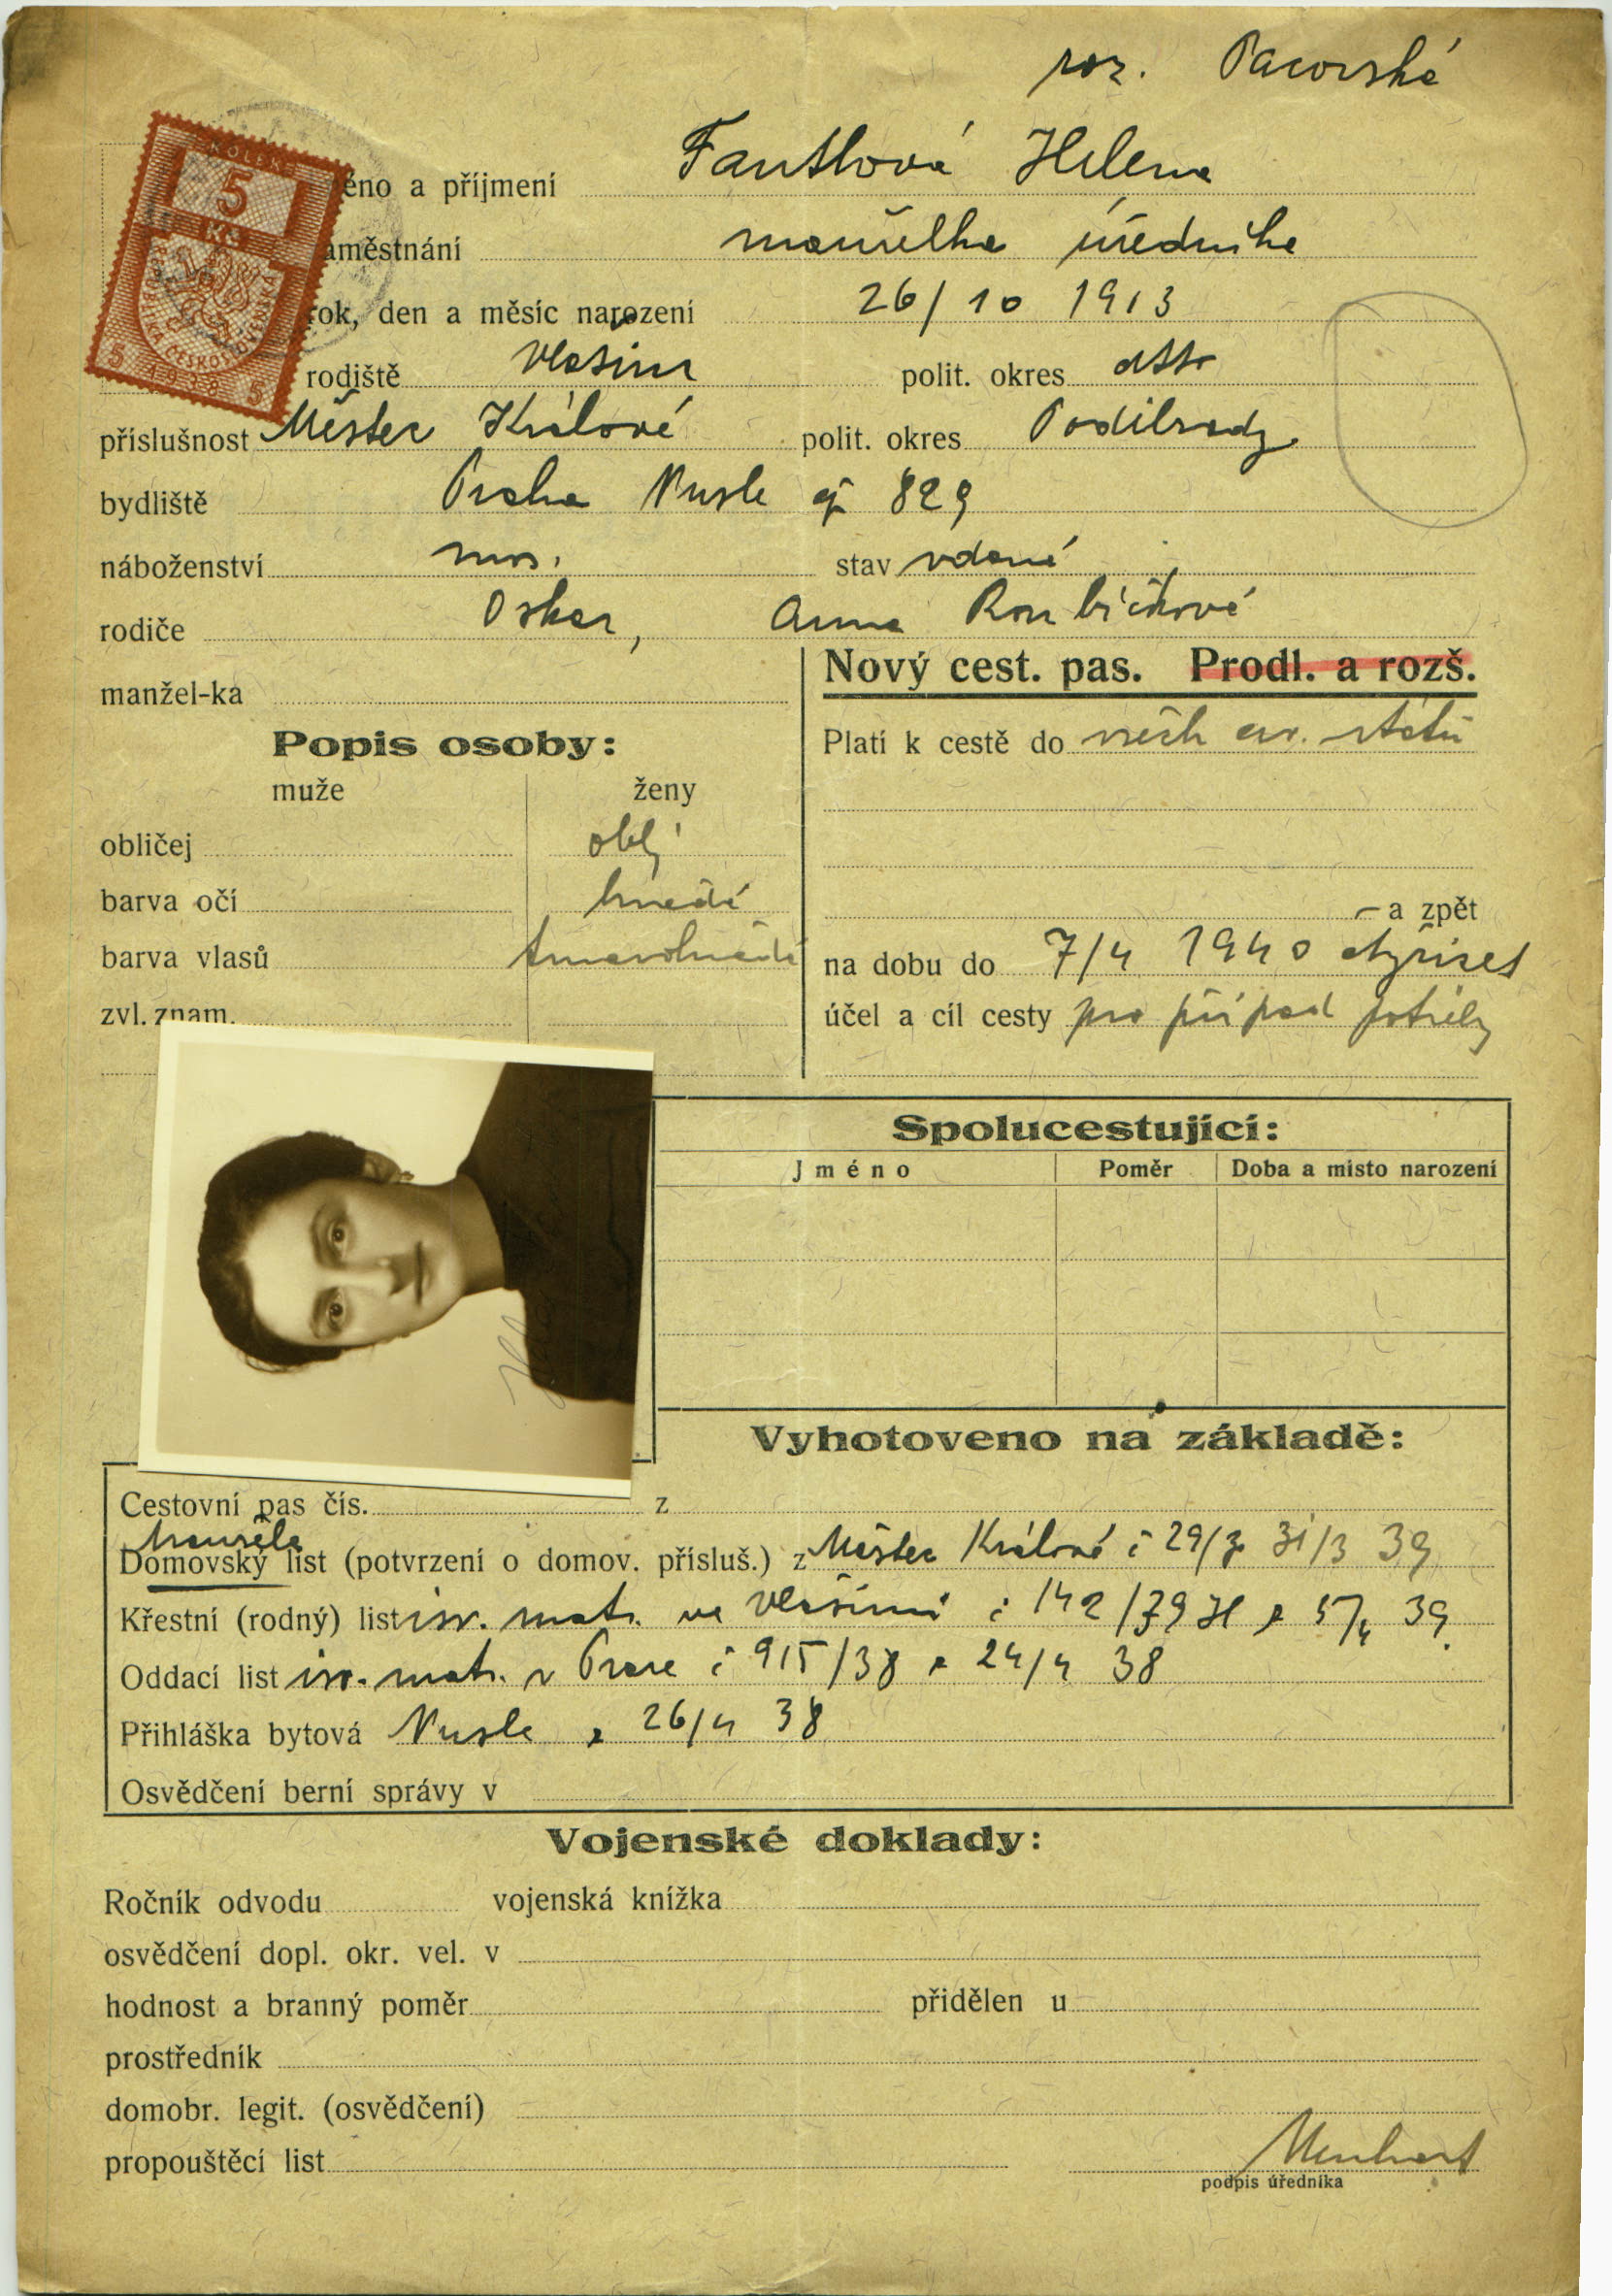 roz. Pacovská
KOLEK
5
Kč
REPUBLIKA ČESKOSLOVENSKÁ
5 1938 5
éno a příjmení Fantlová Helena
aměstnání manželka úředníka
rok, den a měsíc narození 26/10 1913
rodiště Vlašim polit. okres dtto
příslušnost Městec Králové polit. okres Poděbrady
bydliště Praha Nusle čp 829
náboženství mos. stav vdaná
rodiče Oskar, Anna Roubíčková
Nový cest. pas. Prodl. a rozš.
manžel-ka
Popis osoby:
Platí k cestě do všech ev. států
muže ženy
obličej oblý
barva očí hnědé
– a zpět
barva vlasů tmavohnědé
na dobu do 7/4 1940 čtyřicet
zvl. znam.
účel a cíl cesty pro případ potřeby
Spolucestující:
Jméno Poměr Doba a místo narození
Vyhotoveno na základě:
Cestovní pas čís. z
manžela
Domovský list (potvrzení o domov. přísluš.) z Městec Králové č 29/ 31/3 39
Křestní (rodný) list isr. matr. ve Vlašimi č 142/39 H z 5/4 39.
Oddací list isr. matr. v Praze č 915/38 z 24/4 38
Přihláška bytová Nusle z 26/4 38
Osvědčení berní správy v
Vojenské doklady:
Ročník odvodu vojenská knížka
osvědčení dopl. okr. vel. v
hodnost a branný poměr přidělen u
prostředník
domobr. legit. (osvědčení)
propouštěcí list
podpis úředníka